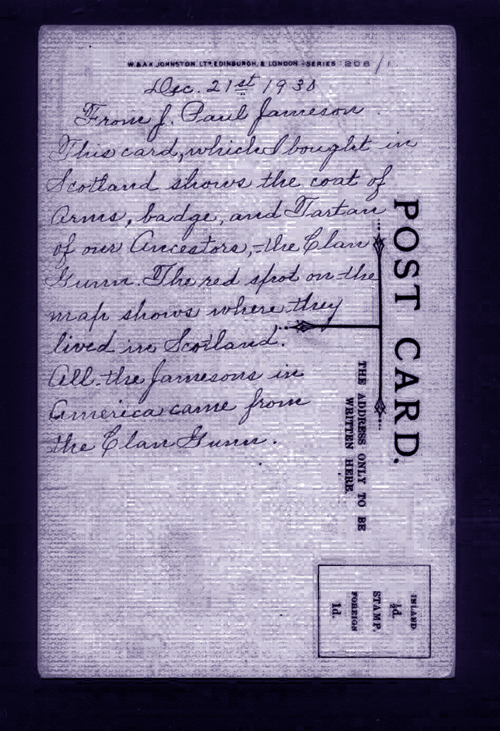 W. & A.K. JOHNSTON, LTD. EDINBURGH, & LONDON - SERIES 208/1
Dec. 21st 1930
From J. Paul Jameson.
This card, which I bought in
Scotland shows the coat of
Arms, badge, and Tartan
of our Ancestors, - the Clan
Gunn. The red spot on the
map shows where they
lived in Scotland.
All the Jamesons in
America came from
the Clan Gunn.
POST CARD.
THE ADDRESS ONLY TO BE
WRITTEN HERE.
INLAND
½d.
STAMP.
FOREIGN
1d.